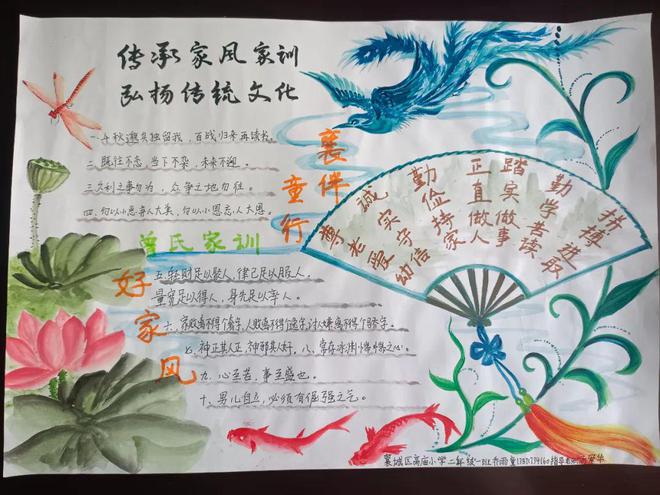 传承家风家训
弘扬传统文化
一.千秋邈矣独留我，百战归来再读书。
二.既往不恋，当下不杂，未来不迎。
三.久利之事勿为，众争之地勿往。
四.勿以小恶弃人大美，勿以小怨忘人大恩。
曾氏家训
五.轻财足以聚人，律己足以服人，
量宽足以得人，身先足以率人。
六、家败离不得个奢字，人败离不得个逸字，讨人嫌离不得个骄字。
七、神正其人正，神邪其人奸。八、常存冰渊惴惴之心。
九、心至苦，事至盛也。
十、男儿自立，必须有倔强之气。
襄伴
童行
好家风
尊老爱幼
诚实守信
勤俭持家
正直做人
踏实做事
勤学善读
拼搏进取
襄城区高庙小学二年级一班